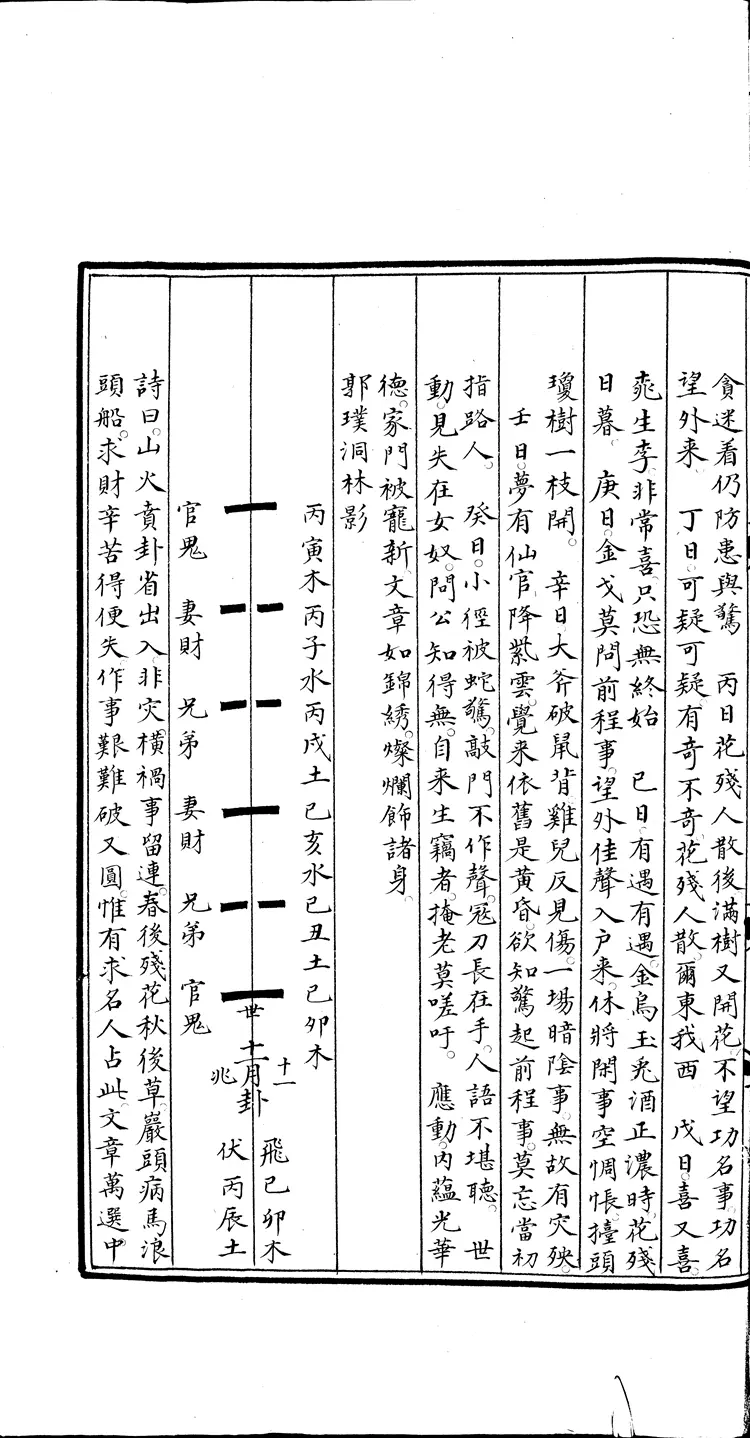 貪迷着仍防患與驚　丙日花殘人散後滿樹又開花不望功名事。功名
望外来　丁日可疑可疑。有奇不奇。花殘人散。爾東我西　戊日喜又喜。
兆生李。非常喜。只恐無終始　己日有遇有遇。金烏玉兎酒正濃時。花殘
日暮。　庚日。金戈莫問前程事。望外佳聲入户来。休將閑事空惆悵。擡頭
瓊樹一枝開。　辛日大斧破鼠背雞兒反見傷。一場暗陰事。無故有灾殃。
壬日。夢有仙官降紫雲。覺来依舊是黄昏。欲知驚起前程事。莫忘當初
指路人。　癸日。小徑被蛇驚。敲門不作聲。寇刀長在手。人語不堪聽。　世
動。見失在女奴。問公知得無。自来生竊者。掩老莫嗟吁。　應動。内蘊光華
德。家門被寵新。文章如錦綉。燦爛飾諸身。
郭璞洞林影
丙寅木　丙子水　丙戌土　已亥水　已丑土　已卯木
世　十一月卦
兆　十一
飛已卯木
伏丙辰土
官鬼　妻財　兄弟　妻財　兄弟　官鬼
詩曰。山火賁卦省出入。非灾横禍事留連。春後殘花秋後草。巖頭病馬浪
頭船。求財辛苦得便失。作事艱難破又圓。惟有求名人占此。文章萬選中